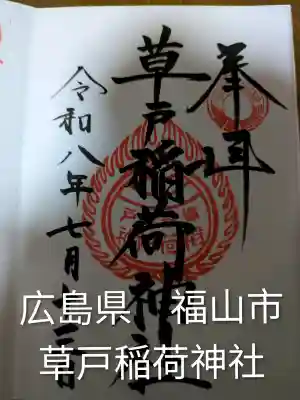 奉拝
草戸稲荷神社
令和八年七月十三日
広島県 福山市
草戸稲荷神社